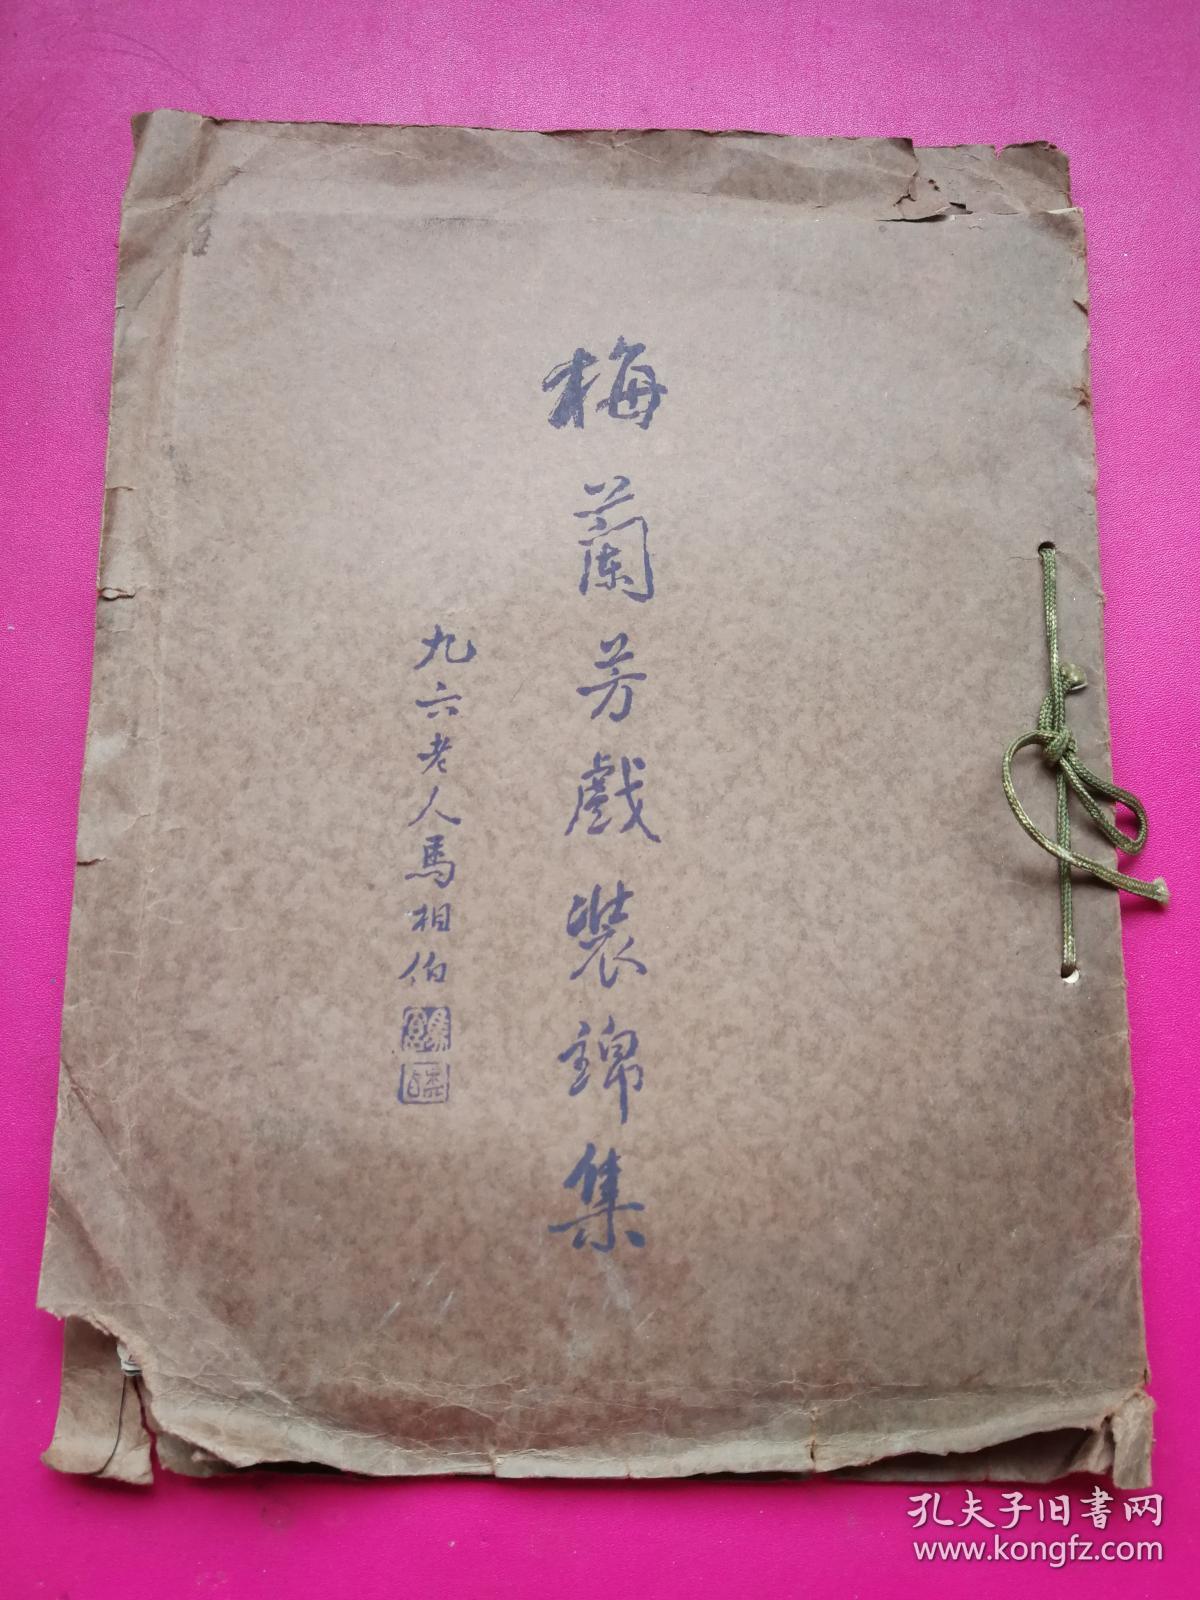 梅蘭芳戲裝錦集
九六老人馬相伯
孔夫子旧书网
www.kongfz.com